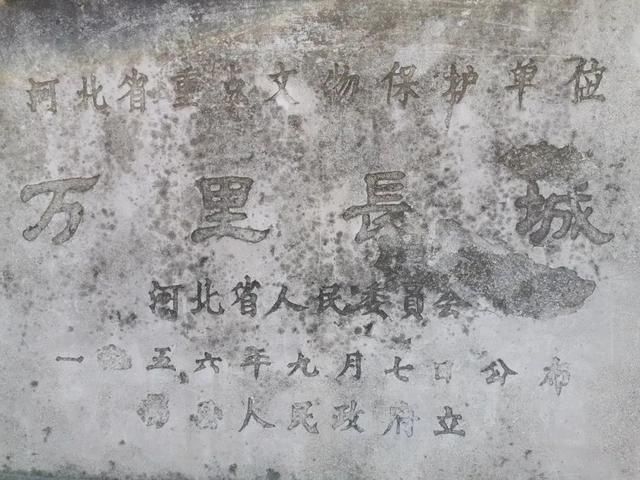 河北省重点文物保护单位
万里長城
河北省人民委員会
一九五六年九月七日公布
县人民政府立